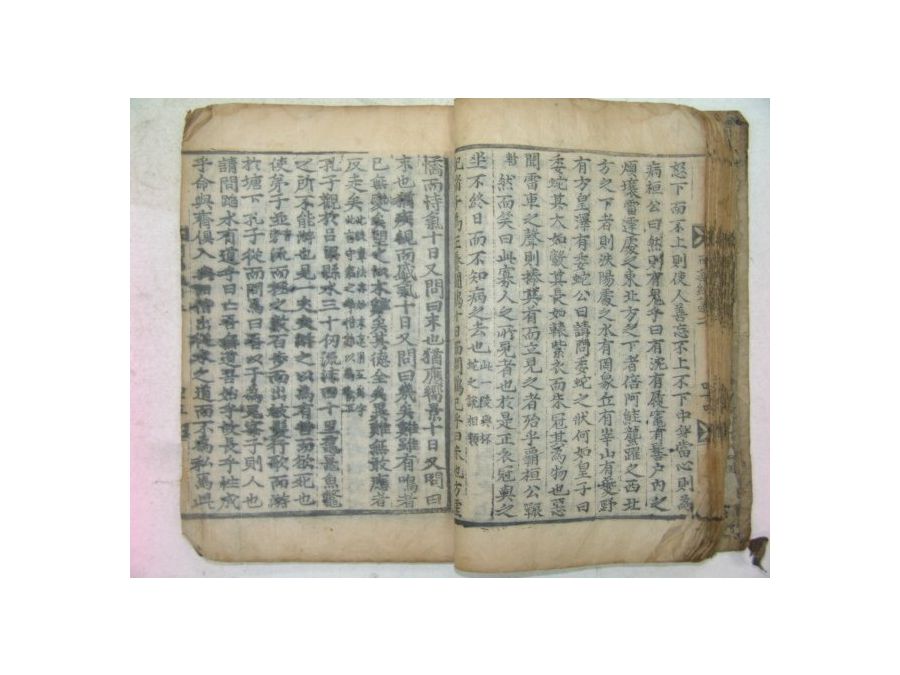 怒下而不上則使人善忘不上不下中身當心則爲
病桓公曰然則有鬼乎曰有沈有履竈有髻戶內之
煩壤雷霆處之東北方之下者倍阿鮭蠪躍之西北
方之下者則泆陽處之水有罔象丘有峷山有夔野
有方皇澤有委蛇公曰請問委蛇之狀何如皇子曰
委蛇其大如轂其長如轅紫衣而朱冠其爲物也惡
聞雷車之聲則捧其首而立見之者殆乎霸桓公辴
然而笑曰此寡人之所見者也於是正衣冠與之
坐不終日而不知病之去也此一段與杯蛇之說相類
紀渻子爲王養鬪鷄十日而問鷄已乎曰未也方虛
憍而恃氣十日又問曰未也猶應嚮景十日又問曰
未也猶疾視而盛氣十日又問曰幾矣雞雖有鳴者
已無變矣望之似木雞矣其德全矣異雞無敢應者
反走矣
孔子觀於呂梁縣水三十仞流沫四十里黿鼉魚鼈
之所不能游也見一丈夫游之以爲有苦而欲死也
使弟子並流而拯之數百步而出被髮行歌而游
於塘下孔子從而問焉曰吾以子爲鬼察子則人也
請問蹈水有道乎曰亡吾無道吾始乎故長乎性成
乎命與齊俱入與汩偕出從水之道而不爲私焉此